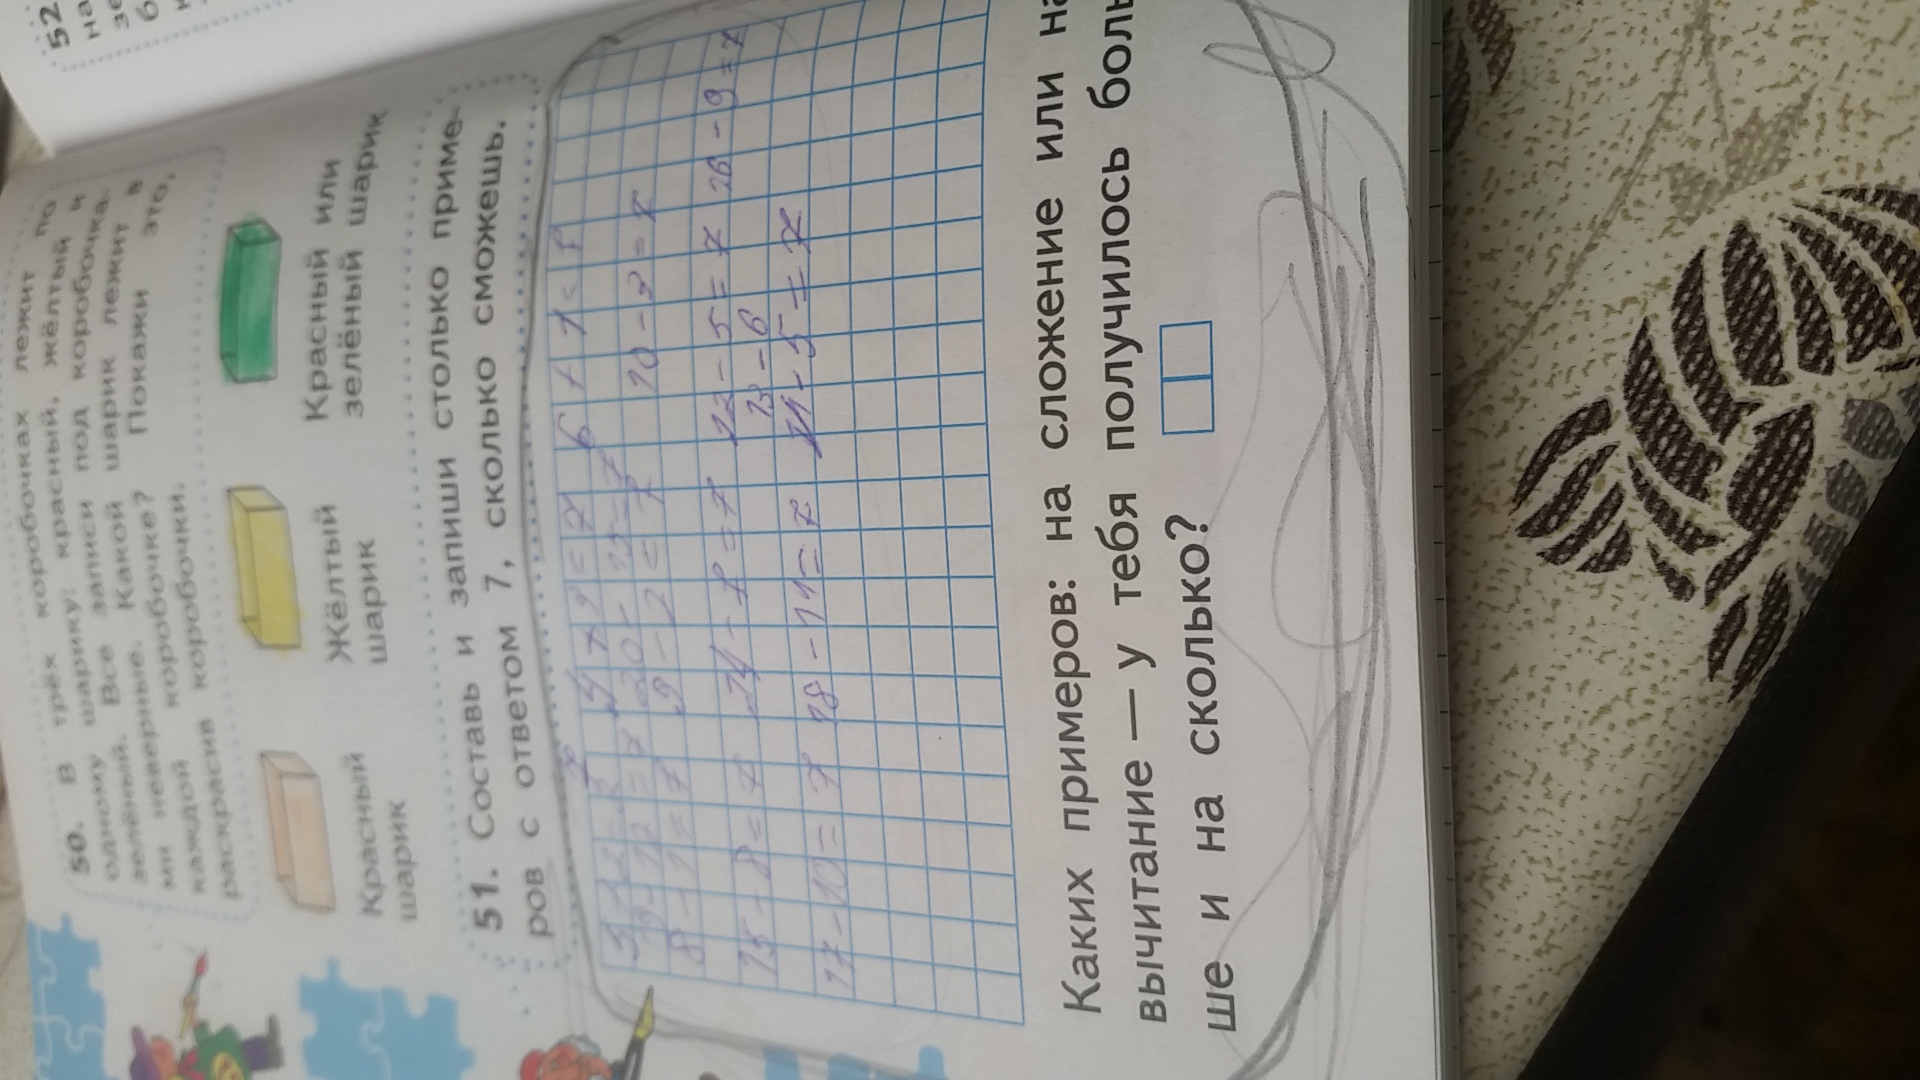 50. В трёх коробочках лежит по
одному шарику: красный, жёлтый и
зелёный. Все записи под коробочка-
ми неверные. Какой шарик лежит в
каждой коробочке? Покажи это,
раскрасив коробочки.
Красный
шарик
Жёлтый
шарик
Красный или
зелёный шарик
51. Составь и запиши столько приме-
ров с ответом 7, сколько сможешь.
8-1=7 9-2=7 10-3=7
15-8=7 14-7=7 12-5=7 16-9=7
13-6
17-10=7 18-11=7
Каких примеров: на сложение или на
вычитание — у тебя получилось боль
ше и на сколько?
52